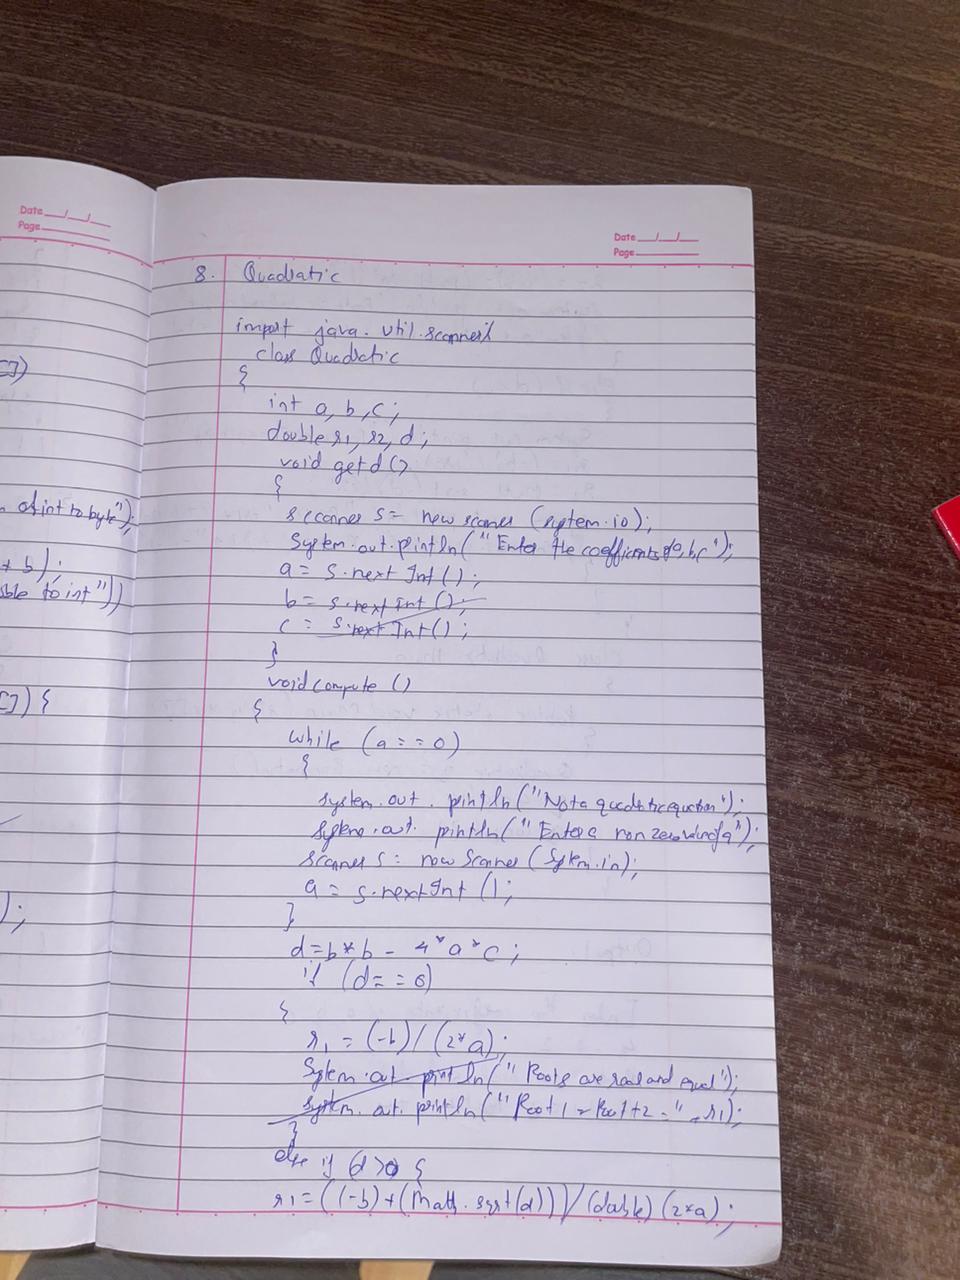 Date __/__/__
Page
[])
n of int to byte");
+ b);
ble to int"))
[]) {
);
Date __/__/__
Page
8. Quadratic
import java.util.scanner;
class Quadratic
{
int a, b, c;
double r1, r2, d;
void getd()
{
scanner s = new scaner (system.in);
System.out.println("Enter the coefficients of a,b,c");
a = s.next Int();
b = s.next int();
c = s.next Int();
}
void compute ()
{
while (a == 0)
{
system.out.println("Not a quadratic equation");
System.out.println("Enter a non zero value of a");
scanner s = new Scanner (System.in);
a = s.nextInt ();
}
d = b*b - 4*a*c;
if (d == 0)
{
r1 = (-b)/(2*a);
System.out.println("Roots are real and equal");
system.out.println("Root 1 = Root 2 = " + r1);
}
else if (d>0) {
r1 = ((-b)+(Math.sqrt(d)))/(double)(2*a);